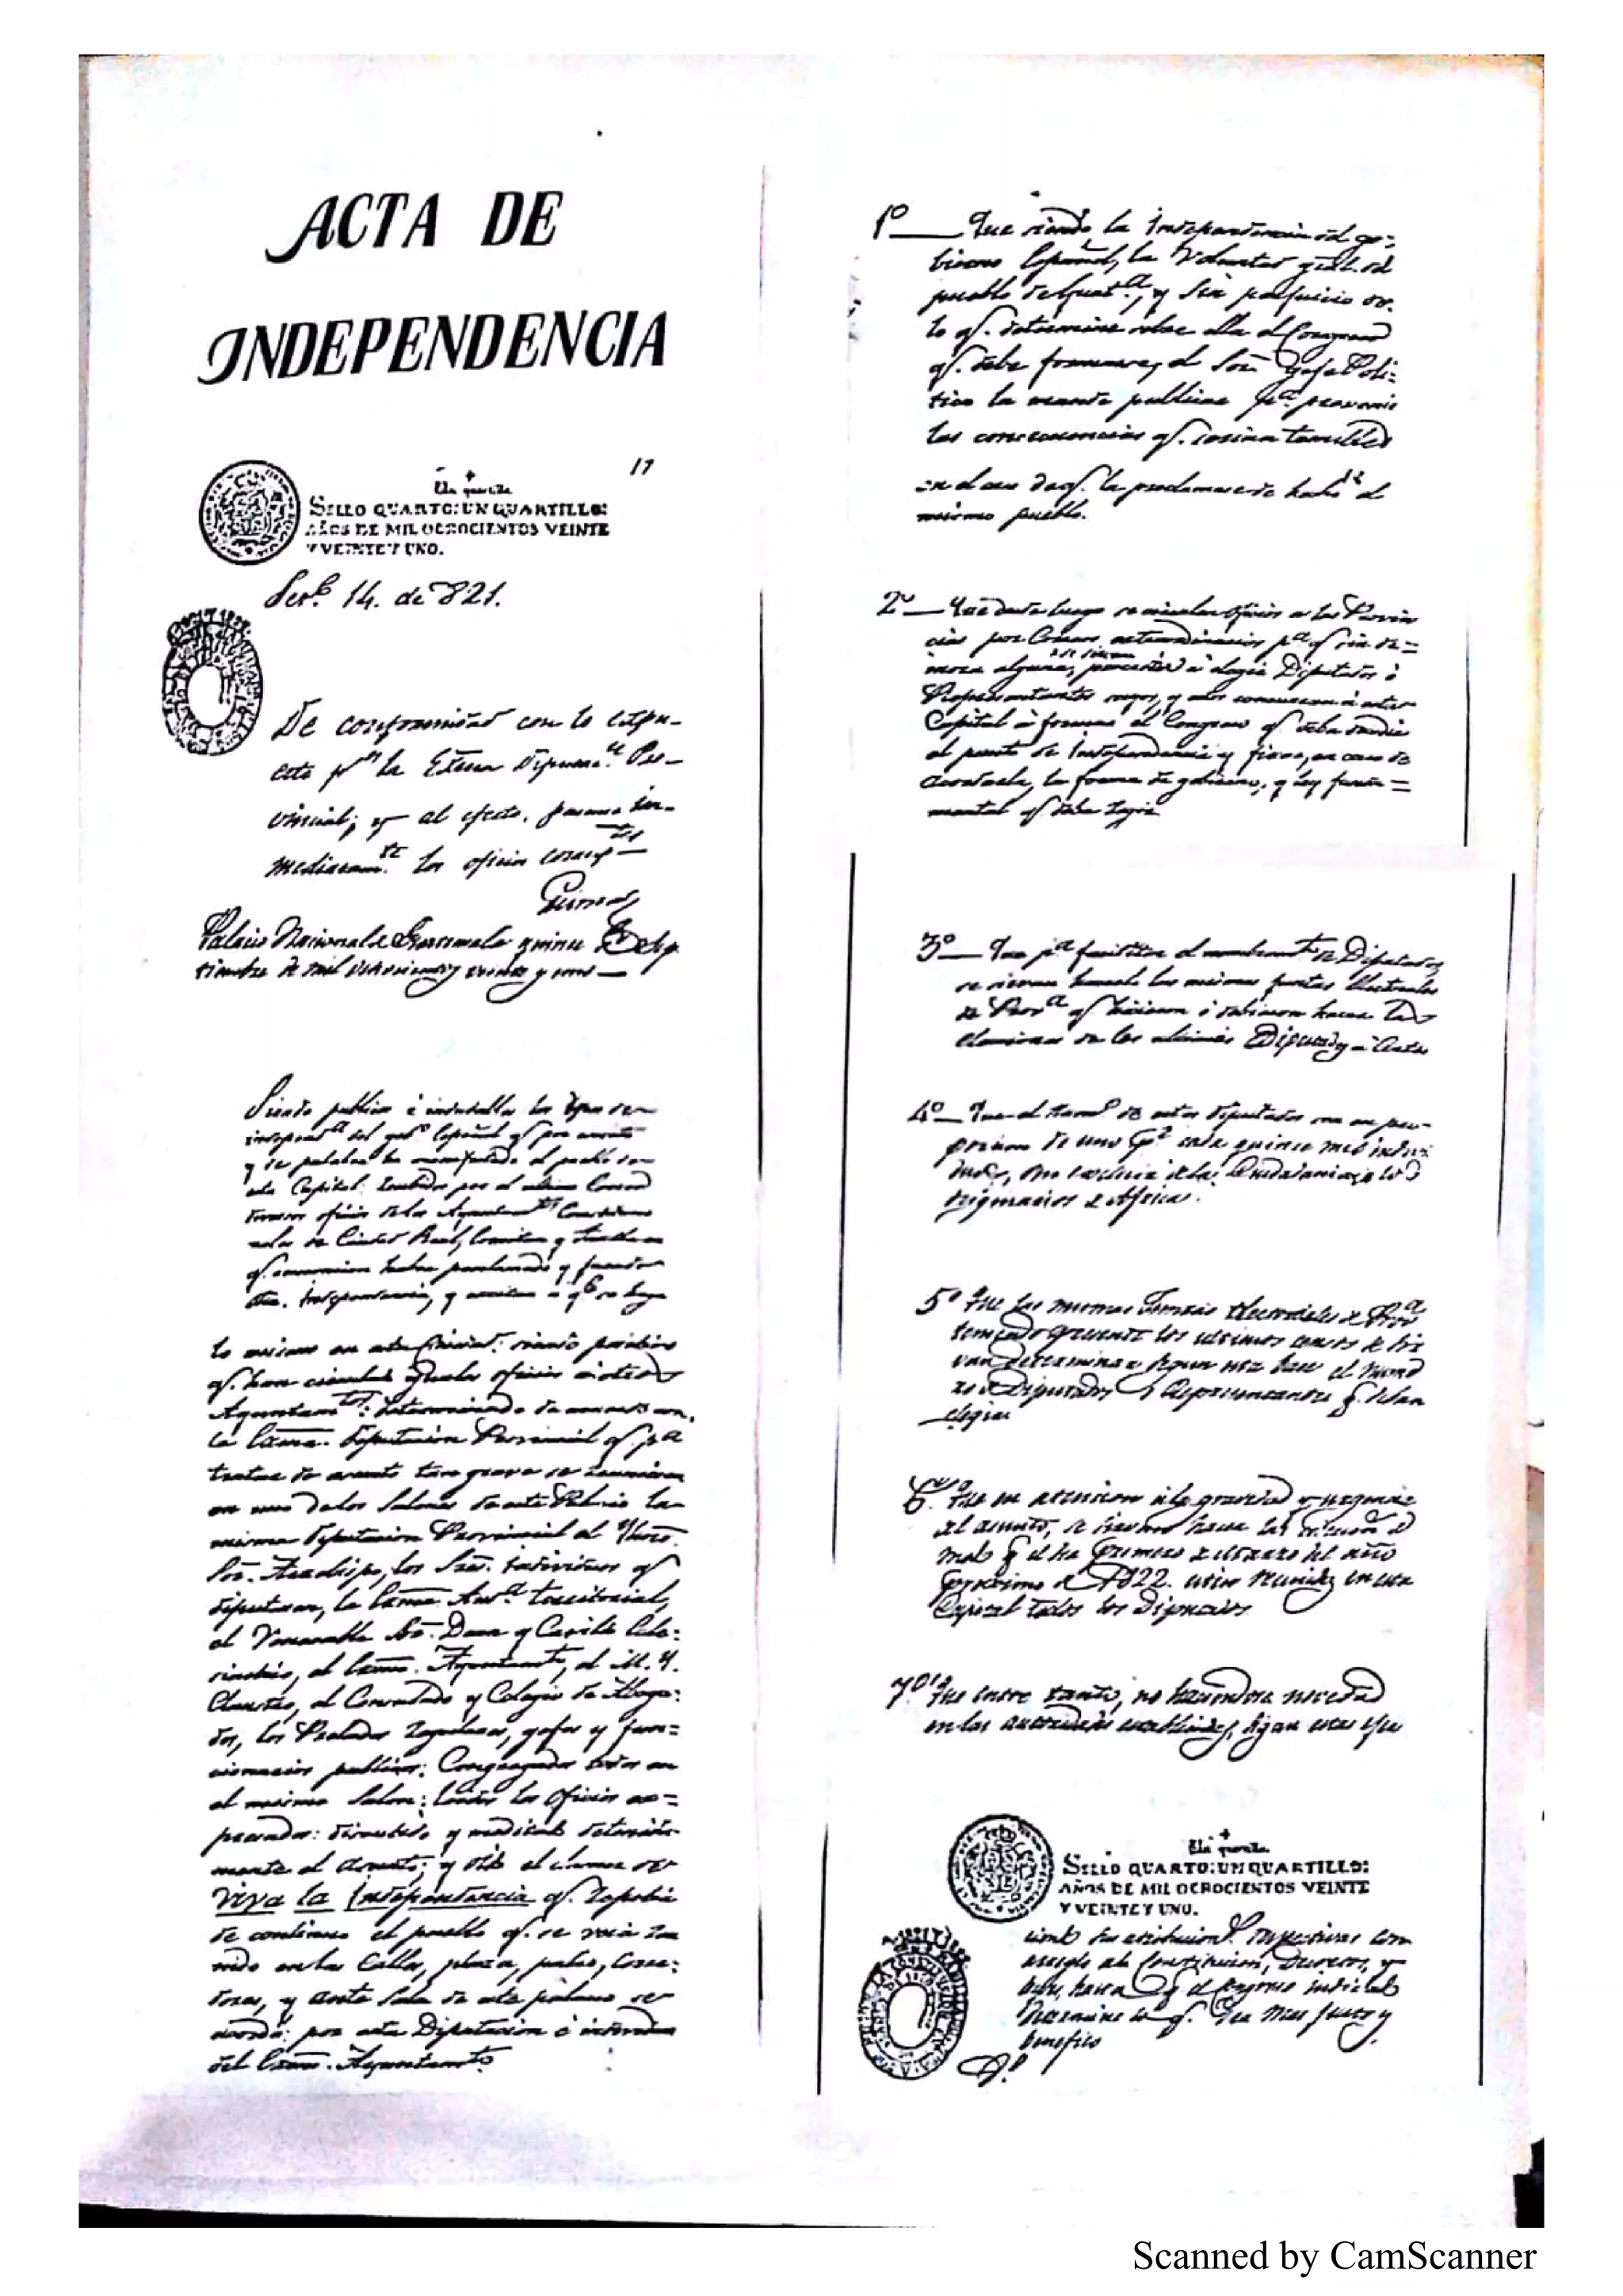 ACTA DE
INDEPENDENCIA
17
Un quarto
SELLO QUARTO: UN QUARTILLO:
AÑOS DE MIL OCHOCIENTOS VEINTE
Y VEINTE Y UNO.
14. de 821.
De conformidad con lo
la Exma
y al efecto,
los oficios
Palacio Nacional de Guatemala quince de Sep
tiembre de mil ochocientos veinte y uno
Siendo publicos é indudables los deseos de
del Español
y de palabra ha manifestado el pueblo de
esta Capital: recibidos por el ultimo
oficios de los Constitucio
nales de Ciudad Real, Comitan y Tuxtla en
q. comunican haber proclamado y jurado
dha. independencia, y excitan a q.e se haga
lo mismo en esta Ciudad: siendo positivo
q. han circulado iguales oficios á otros
Ayuntam.tos: determinado de acuerdo con
la Exma. Diputacion Provincial q. p.a
tratar de asunto tan grave se reuniesen
en uno de los Salones de este Palacio la
misma Diputacion Provincial el Illmo.
Sor. Arzobispo, los Sres. individuos q.
diputasen, la Exma. Aud.a territorial,
el Venerable Sr. Dean y Cavildo Ecle=
siastico, el Exmo. Ayuntamto, el M. Y.
Claustro, el Consulado y Colegio de Aboga=
dos, los Prelados regulares, gefes y fun=
cionarios publicos: Congregados todos en
el mismo Salon: leidos los Oficios ex=
presados: discutido y meditado detenida
mente el asunto; y oido el clamor de
Viva la Independencia q. repetia
de continuo el pueblo q. se veia reu
nido en las Calles, plaza, patio, Corre=
dores, y ante Sala de este palacio se
acordó: por esta Diputacion é individuos
del Exmo. Ayuntamto
1o Que siendo la Independencia del go=
bierno Español, la Voluntad gral. del
pueblo de Guat.a, y Sin perjuicio de
lo q. determine sobre ella el Congreso
q. debe formarse, el Sor. Gefe Poli=
tico la mande publicar p.a prevenir
las consecuencias q. serian temibles
en el caso de q. la proclamase de hecho el
mismo pueblo.
2o Que desde luego se circulen Oficios a las Provin
cias por Correos extraordinarios p.a q. sin de=
mora alguna, se sirvan proceder á elegir Diputados ó
Representantes suyos, y estos concurran á esta
Capital á formar el Congreso q. deba decidir
el punto de Independencia y fixar, en caso de
acordarla, la forma de gobierno, y ley funda=
mental q. deba regir
3o Que p.a facilitar el nombramto de Diputados,
se sirvan hacerlo las mismas juntas Electorales
de Prov.a q. hicieron ó debieron hacer las
elecciones de los ultimos Diputados a Cortes
4o Que el num.o de estos diputados sea en pro-
porcion de uno p.r cada quince mil indivi
duos, sin excluir de la Ciudadania a los
originarios de Africa.
5o Que las mismas Juntas electorales de Prov.a
teniendo presente los ultimos censos se sir
van determinar segun esta base el nume
ro de Diputados ó Representantes q. deban
elegir
6o Que en atencion á la gravedad y urgencia
del asunto, se sirvan hacer las elecciones de
modo q. el dia primero de Marzo del año
proximo de 1822. esten reunidos en esta
Capital todos los Diputados
7o Que entre tanto, no haciendose novedad
en las autoridades establecidas, sigan estas exer
Un quarto
SELLO QUARTO: UN QUARTILLO:
AÑOS DE MIL OCHOCIENTOS VEINTE
Y VEINTE Y UNO.
ciendo sus atribuciones respectivas con
arreglo a la Constitucion, Decretos, y
leyes, hasta q. el Congreso indicado
determine lo q. sea mas justo y
benefico
Scanned by CamScanner